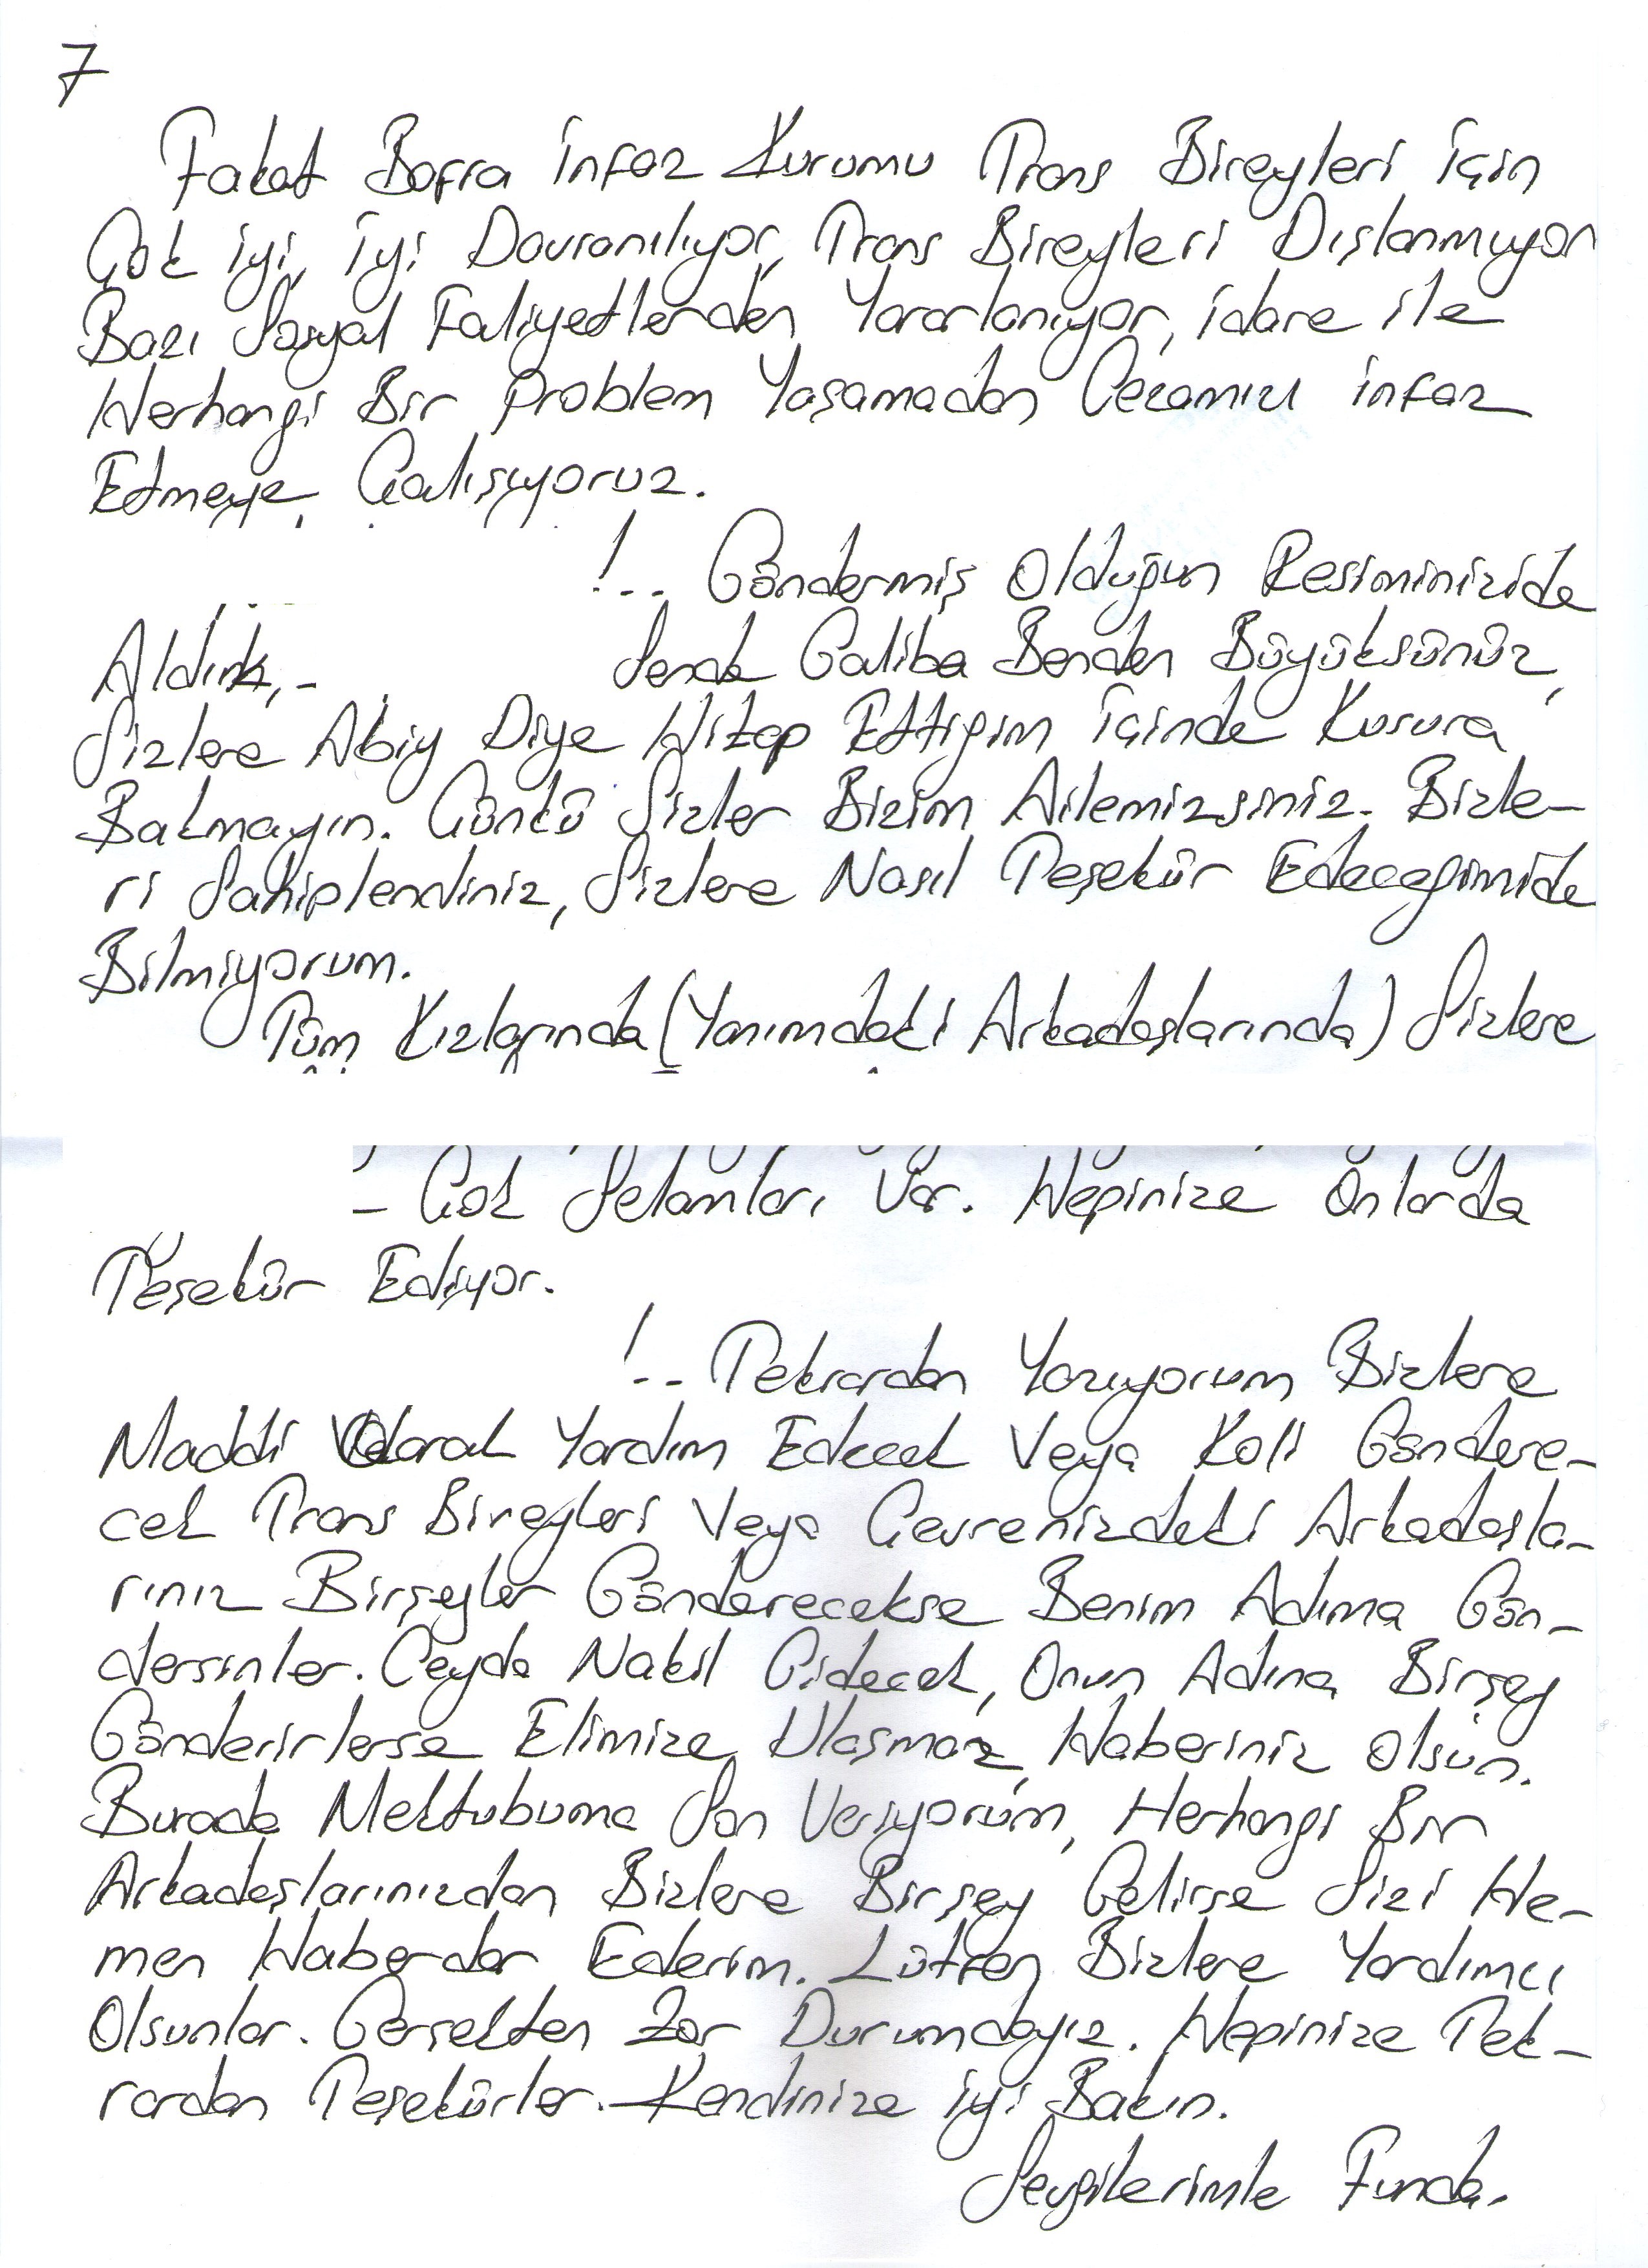 7
Fakat Bafra İnfaz Kurumu Trans Bireyleri İçin
Çok iyi, İyi Davranılıyor, Trans Bireyleri Dışlanmıyor
Bazı Sosyal Faliyetlerden Yararlanıyor, idare ile
Herhangi Bir Problem Yaşamadan Cezamızı infaz
Etmeye Çalışıyoruz.
!.. Göndermiş Olduğun Resiminizide
Aldım,-
Sende Galiba Benden Büyüksünüz,
Sizlere Abiy Diye Hitap Ettiğim İçinde Kusura
Bakmayın. Çünkü Sizler Bizim Ailemizsiniz. Bizle-
ri Sahiplendiniz, Sizlere Nasıl Teşekür Edeceğimide
Bilmiyorum.
Tüm Kızlarında (Yanımdaki Arkadaşlarında) Sizlere
- Çok Selamları Var. Hepinize Onlarda
Teşekür Ediyor.
!.. Tekrardan Yazıyorum Bizlere
Maddi Olarak Yardım Edecek Veya Koli Göndere-
cek Trans Bireyleri Veya Çevrenizdeki Arkadaşla-
rınız Birşeyler Gönderecekse Benim Adıma Gön-
dersinler. Ceyda Nakil Gidecek, Onun Adına Birşey
Gönderirlerse Elimize Ulaşmaz, Haberiniz Olsun.
Burada Mektubuma Son Veriyorum, Herhangi Bir
Arkadaşlarınızdan Bizlere Birşey Gelirse Sizi He-
men Haberdar Ederim. Lütfen Bizlere Yardımcı
Olsunlar. Gerçekten Zor Durumdayız. Hepinize Tek-
rardan Teşekürler. Kendinize iyi Bakın.
Sevgilerimle Funda.